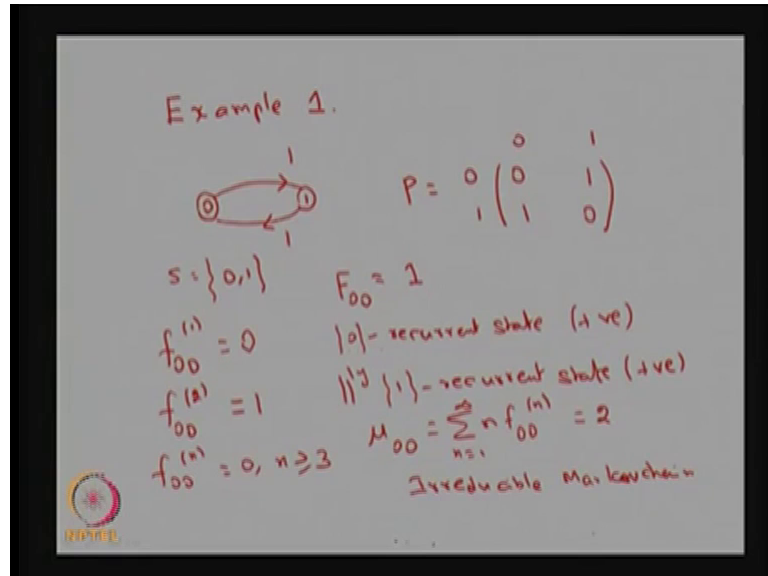 Example 1.
1
0 1
1
P = 0 ( 0 1 )
1 ( 1 0 )
0 1
S = {0,1}
F₀₀ = 1
f₀₀⁽¹⁾ = 0
{0} - recurrent state (+ve)
f₀₀⁽²⁾ = 1
|||ly {1} - recurrent state (+ve)
μ₀₀ = ∑ₙ₌₁^∞ n f₀₀⁽ⁿ⁾ = 2
f₀₀⁽ⁿ⁾ = 0, n ≥ 3
Irreducible Markov chain
NPTEL